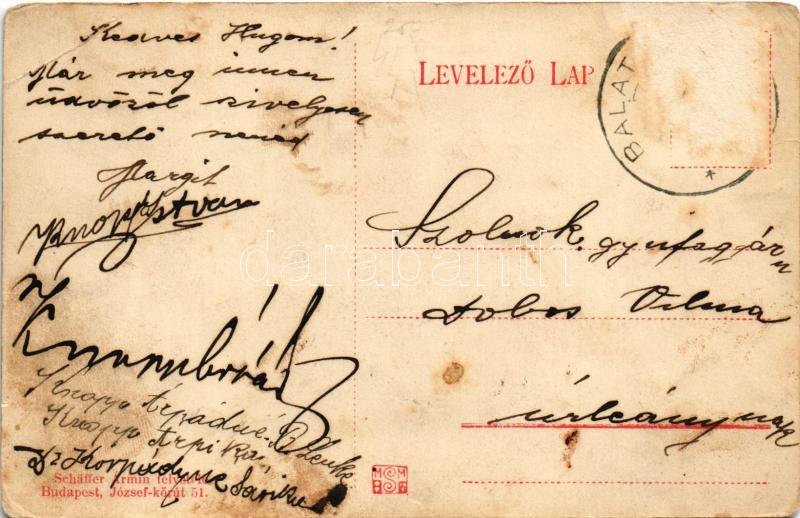 Kedves Hugom!
Már meg innen
üdvözöl szivelyesen
szerető nenéd
Margit
Knopp István
Knopp Árpádné
Knopp Árpika
Dr Korpádyné Sárika
Schäffer Ármin felvétele
Budapest, József-körút 51.
LEVELEZŐ LAP
BALAT
Szolnok. gyufagyár
Dobos Vilma
úrleánynak
darabanth